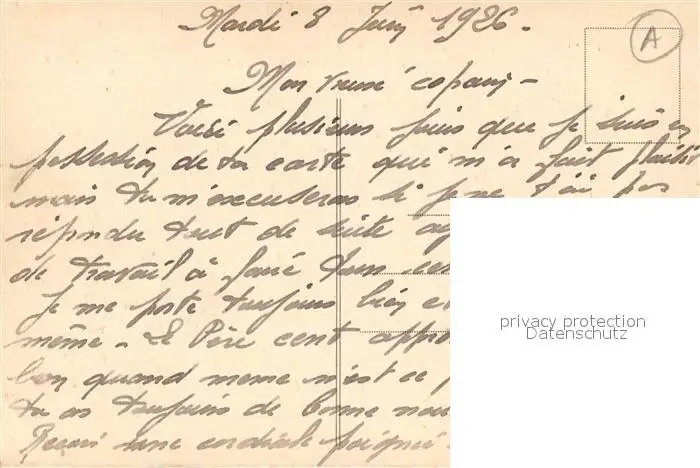 Mardi 8 Juin 1926.
A
Mon vieux copain -
Voici plusieurs jours que je suis en
possession de ta carte qui m'a fait plaisir
mais tu m'excuseras si je ne t'ai pas
répondu tout de suite
de travail à faire dans
Je me porte toujours bien
même - Le Père cent
bon quand meme n'est ce
tu as toujours de bonne
Reçois une cordiale poignée
privacy protection
Datenschutz